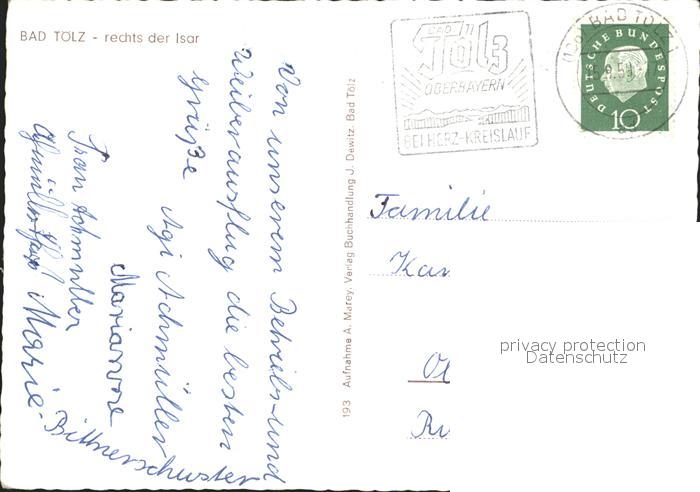 BAD TÖLZ - rechts der Isar
Von unserem Betriebs-und
Weiberausflug die besten
Grüße Agi Achmüller
Marianne
Frau Achmüller
Marie-
Bittnerschuster
193 Aufnahme A. Marey, Verlag Buchhandlung J. Dewitz, Bad Tölz
BAD
Tölz
OBERBAYERN
BEI HERZ-KREISLAUF
BAD TÖLZ
DEUTSCHE BUNDESPOST
10
Familie
Kar
Ol
Ru
privacy protection
Datenschutz